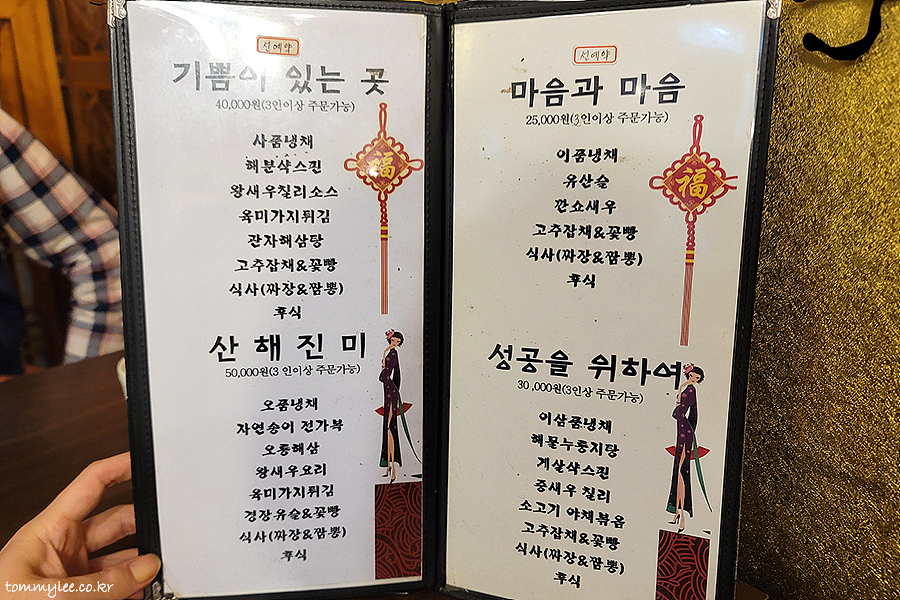 선예약
기쁨이 있는 곳
40,000원(3인이상 주문가능)
사품냉채
해분샥스핀
왕새우칠리소스
육미가지튀김
관자해삼탕
고추잡채&꽃빵
식사(짜장&짬뽕)
후식
福
산 해 진 미
50,000원(3 인이상 주문가능)
오품냉채
자연송이 전가복
오룡해삼
왕새우요리
육미가지튀김
경장유슬&꽃빵
식사(짜장&짬뽕)
후식
선예약
마음과 마음
25,000원(3인이상 주문가능)
이품냉채
유산슬
깐쇼새우
고추잡채&꽃빵
식사(짜장&짬뽕)
후식
福
성공을 위하여
30,000원(3인상 주문가능)
이삼품냉채
해물누룽지탕
게살샥스핀
중새우 칠리
소고기 야채볶음
고추잡채&꽃빵
식사(짜장&짬뽕)
후식
tommylee.co.kr